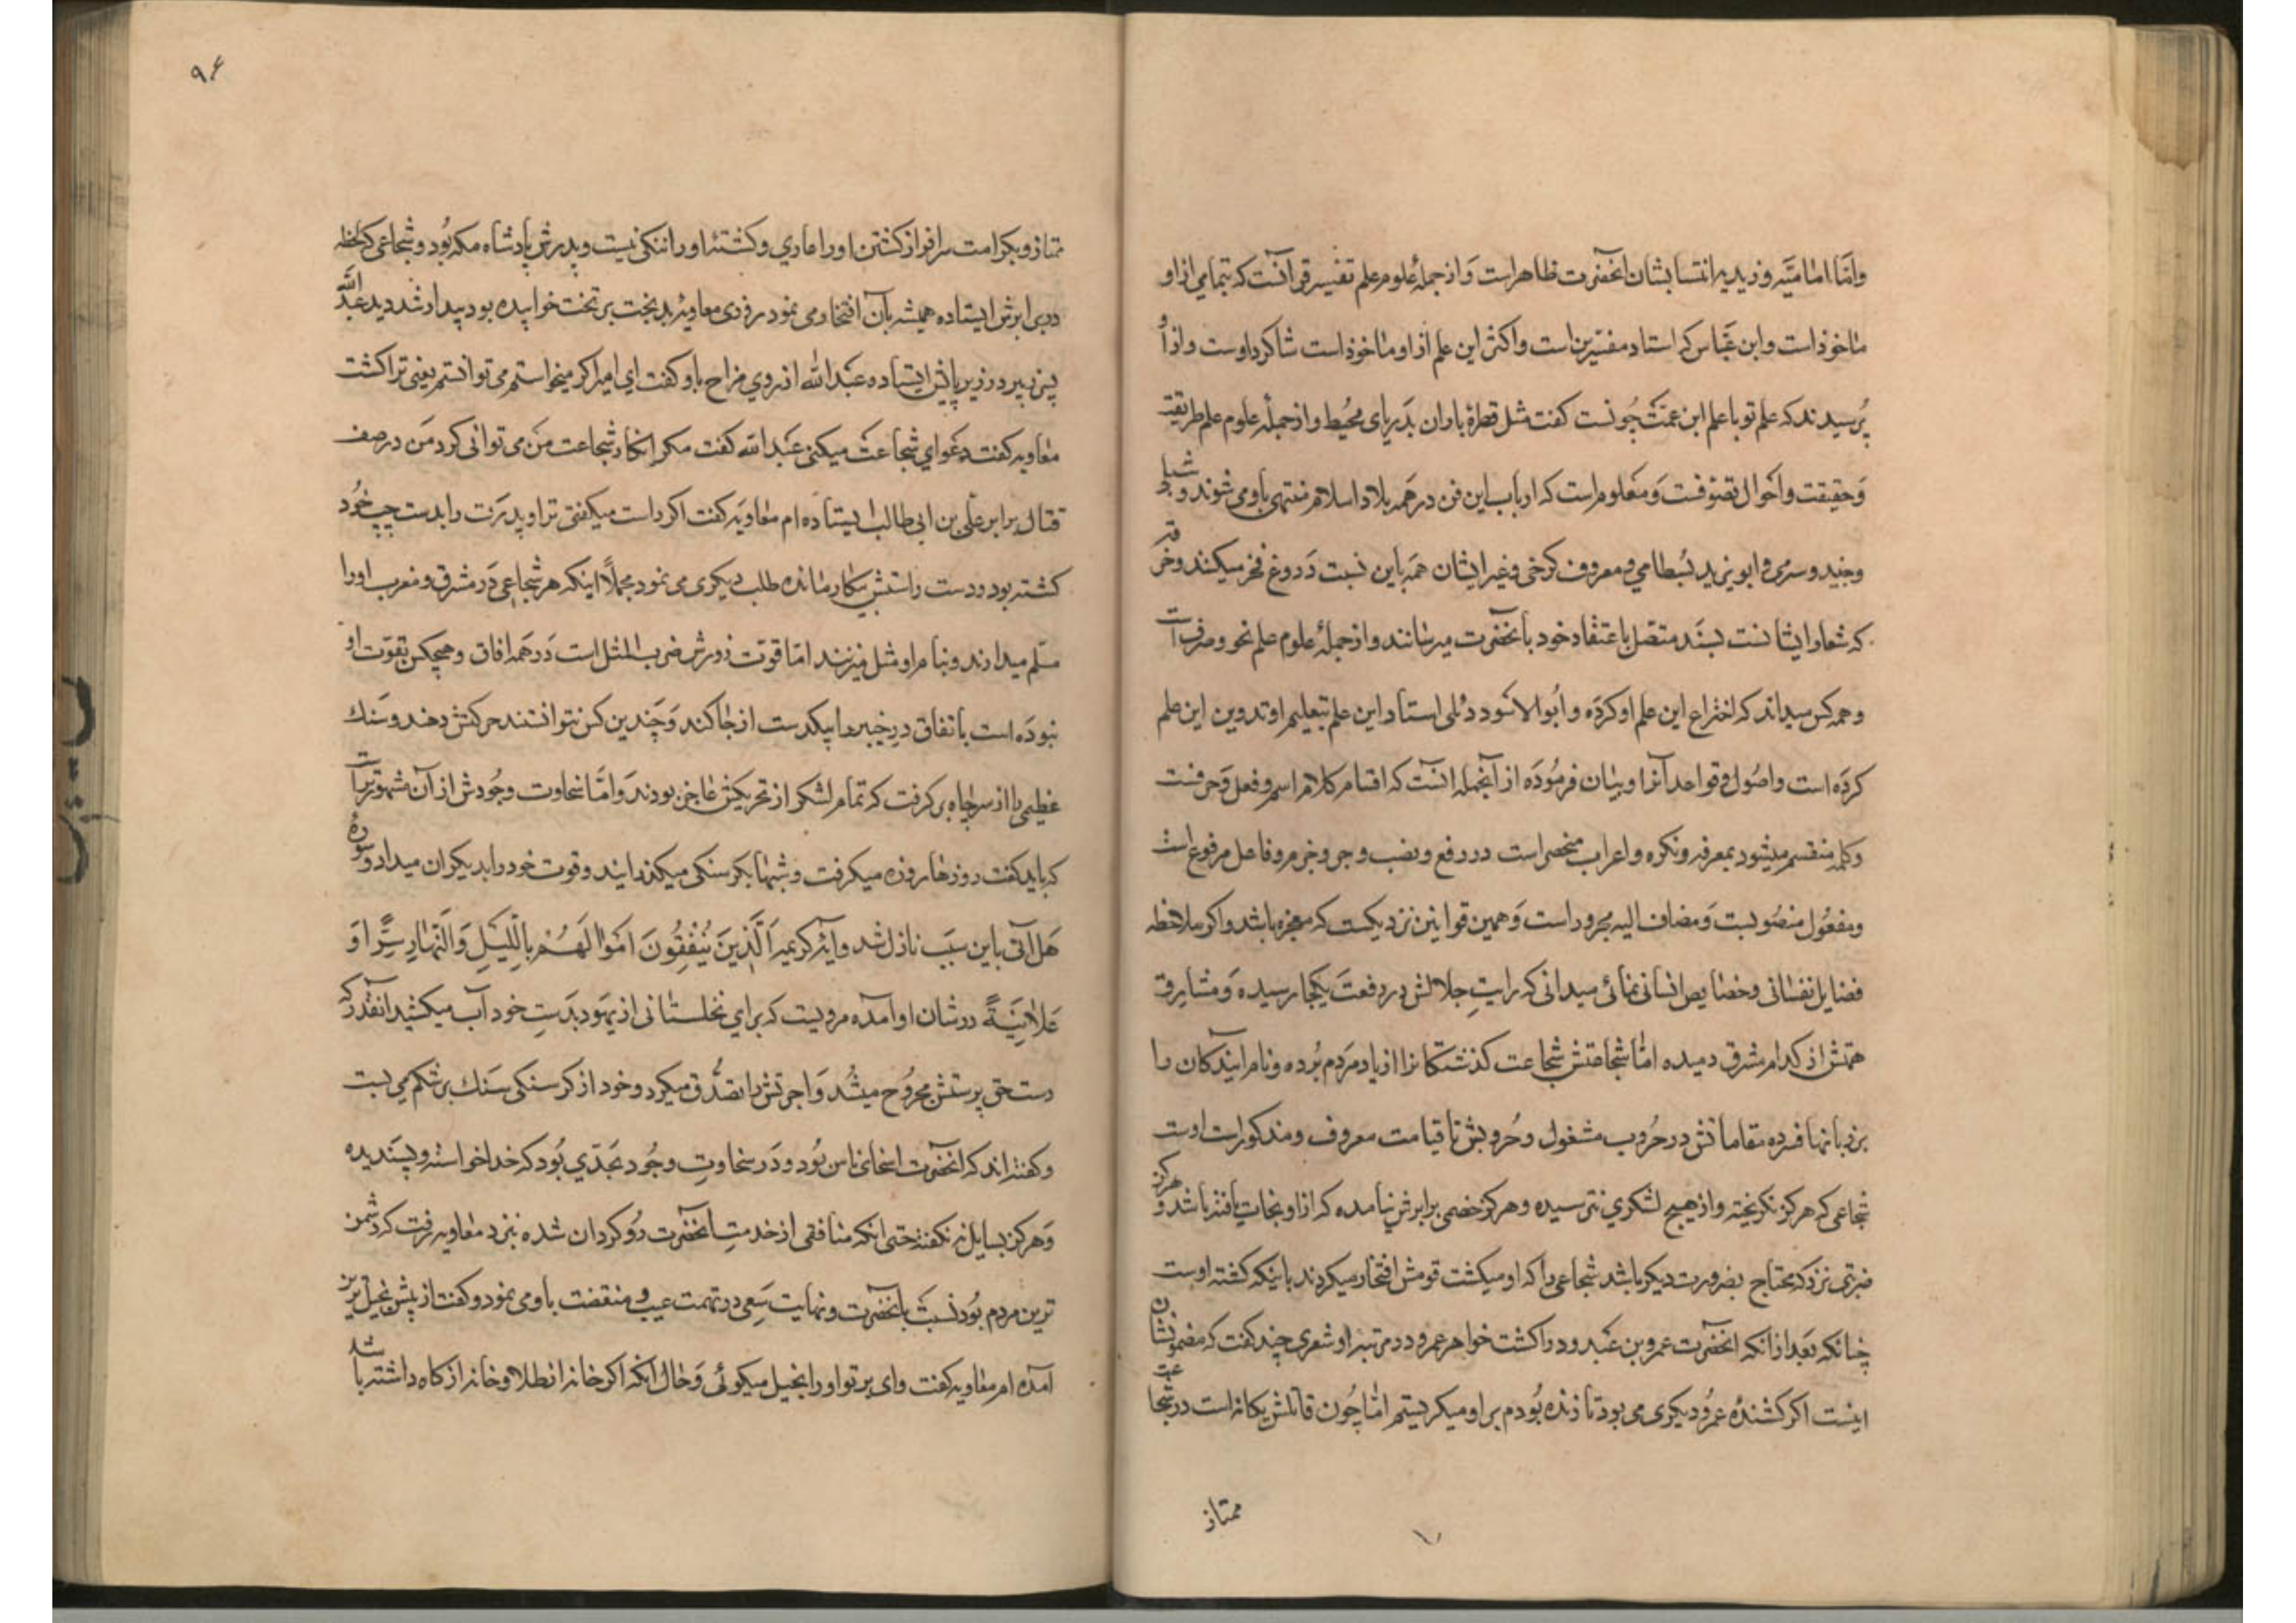 وامّا امامیّه و زیدیه انتسابشان بانحضرت ظاهر است و از جملهٔ علوم علم تفسیر قرآنست که بتمامی از او
ماخوذ است و ابن عبّاس که استاد مفسّرین است و اکثر این علم از او ماخوذ است شاکرد اوست و از او
پُرسیدند که علم تو با علم ابن عمّت چونست کفت مثل قطرهٔ باران بَدریای محیُط و از جملهٔ علوم علم طریقت
وَحقیقت و احوال تصوّفست وَمعلوم است که ارباب این فن در همه بلاد اسلام منتهی باو می شوند و شبلی
و جنید و سری و ابو یزید بسطامی و معروف کرخی و غیر ایشان همه باین نسبت دروغ فخر میکنند و خرقه
که شعار ایشانست بسند متصّل باعتقاد خود بآنحضرت میرسانند و از جملهٔ علوم علم نحو و صرف است
و همه کس میداند که اختراع این علم او کرده و ابُو الاسود دئلی استاد این علم بتعلیم او تدوین این علم
کرده است و اصُول و قواعد آنرا او بیان فرمُوده از آنجمله آنست که اقسام کلام اسم و فعل و حرفست
و کلمه منقسم میشود بمعرفه و نکره و اعراب منحصر است در رفع و نصب و جر و جزم و فاعل مرفوع است
و مفعُول منصُوبست وَمضاف الیه مجرور است وَهمین قوانین نزدیکست که معجزه باشد و اکر ملاحظه
فضایل نفسانی و خصایص انسانی نمائی میدانی که رایتِ جلالش در رفعت بکجا رسیده وَمشارق
همّتش از کدام مشرق دمیده امّا شجاعتش شجاعت کذشتکانرا از یاد مردم بُرده و نام آیندکان را
بر زبانها فسرده مقاماتش در حُروب مشغول و حُروبش تا قیامت معروف و مذکور است اوست
شجاعی که هرکز نکریخته و از هیچ لشکری نترسیده و هرکز خصمی برابرش نیامده که از او نجات یافته باشد و هرکز
ضربتی نزد که محتاج بضرورت دیکر باشد شجاعی را که او میکشت قومش افتخار میکردند باینکه کشته اوست
چنانکه بَعد از آنکه آنحضرت عمرو بن عَبدود را کشت خواهر عمرو در مرتبه او شعری چند کفت که مضمونشان
اینست اکر کشندهٔ عمرُو دیکری می بود تا زنده بُودم بر او میکریستم امّا چُون قاتلش یکانه است در شجاعت
ممتاز
۹۶
ممتاز و بکرامت سرافراز کشتن او را عاری و کشتهٔ او را ننکی نیست و پدرش پادشاه مکه بُود و شجاعی که لحظه
در برابرش ایستاده همیشه بآن افتخار می نمود روزی معاویهٔ بدبخت بر تخت خوابیده بود بیدار شد دید عبد الله
پسر زبیر در زیر پایش ایستاده عبَد الله از روی مزاح باو کفت ای امیر اکر میخواستم می توانستم یعنی ترا کشت
معاویه کفت دعوای شجاعت میکنی عَبد الله کفت مکر انکار شجاعت من می توانی کرد من در صف
قتال برابر علی بن ابی طالب ایستاده ام معاویه کفت اکر راست میکفتی ترا و پدرت را بدست چپ خُود
کشته بود و دست راستش بیکار مانده طلب دیکری می نمود مجملاً اینکه هر شجاعی در مشرق و مغرب او را
مسلّم میدارند و بنام او مثل میزنند امّا قوّت زورش ضرب المثل است در همه افاق و هیچکس بقوّت او
نبوده است باتفاق در خیبر را بیکدست از جا کند وَچندین کس نتوانستند حرکتش دهند و سَنک
عظیمی را از سر چاه بر کرفت که تمام لشکر از تحریکش عاجز بودند وَ امّا سخاوت وجُودش از آن مشهورتر است
که باید کفت روزها روزه میکرفت و شبها بکرسنکی میکذرانید و قوت خود را بدیکران میداد و سورهٔ
هَل اَتی باین سبَب نازل شد و آیهٔ کریمه اَلَّذِینَ یُنْفِقُونَ اَمْوَالَهُمْ بِاللَّیْلِ وَالنَّهَارِ سِرًّا وَ
عَلانِیَةً در شان او آمده مرویست که برای نخلستانی از یهُود بدَستِ خود آب میکشید آنقدر که
دست حق پرستش مجرُوح میشُد وَ اجرتش را تصَدُّق میکرد و خود از کرسنکی سَنک بر شکم می بست
و کفته اند که آنحضرت اسخای ناس بُود و دَر سخاوتِ وجُود بحَدّی بُود که خدا خواسته و پسَندیده
وَهرکز بسایل نه نکفته حتی انکه منافقی از خدمتِ آنحضرت رُوکردان شده بنزد معاویه رفت که دشمن
ترین مردم بُود نسبَت بآنحضرت و نهایت سَعی در تهمت عیب و منقصت باو می نمود و کفت از پیش بخیل ترین
آمده ام معاویه کفت وای بر تو او را بخیل میکوئی وَ حال آنکه اکر خانه از طلا و خانه از کاه داشته باشد